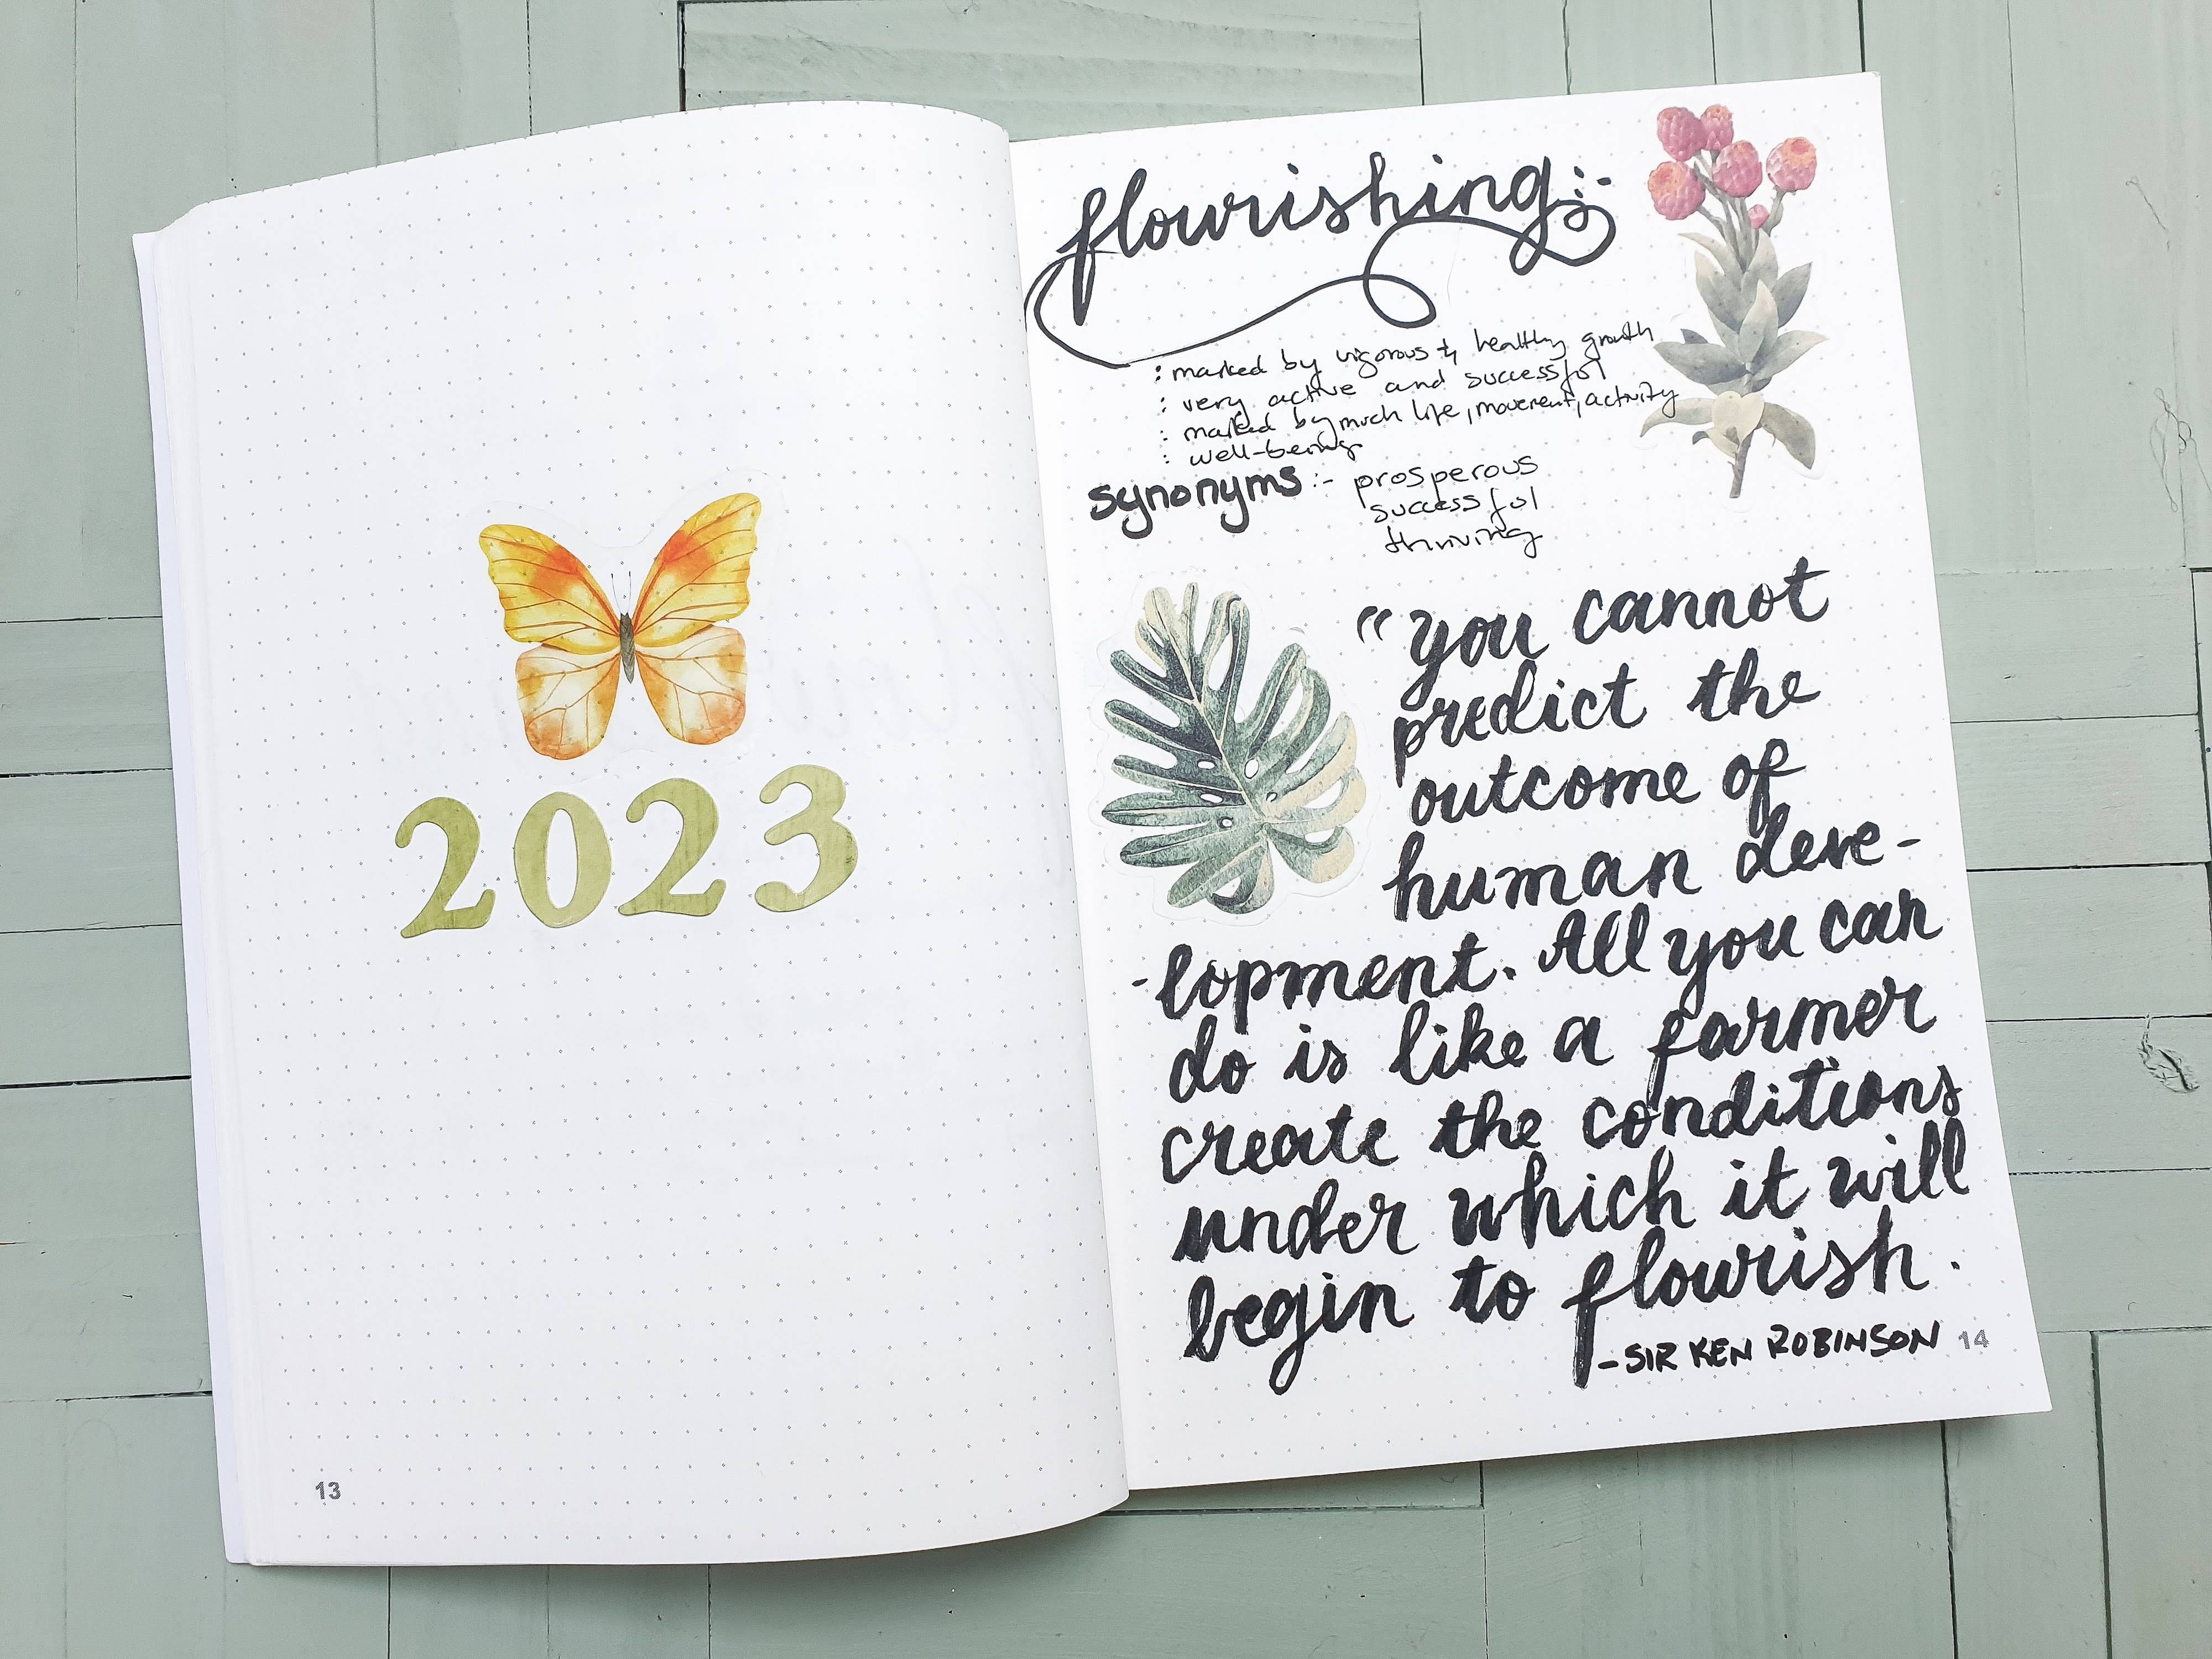 2023
13
flourishing:-
: marked by vigorous & healthy growth
: very active and successful
: marked by much life, movement, activity
: well-being
synonyms:- prosperous
successful
thriving
"you cannot
predict the
outcome of
human deve-
-lopment. All you can
do is like a farmer
create the conditions
under which it will
begin to flourish.
-SIR KEN ROBINSON
14